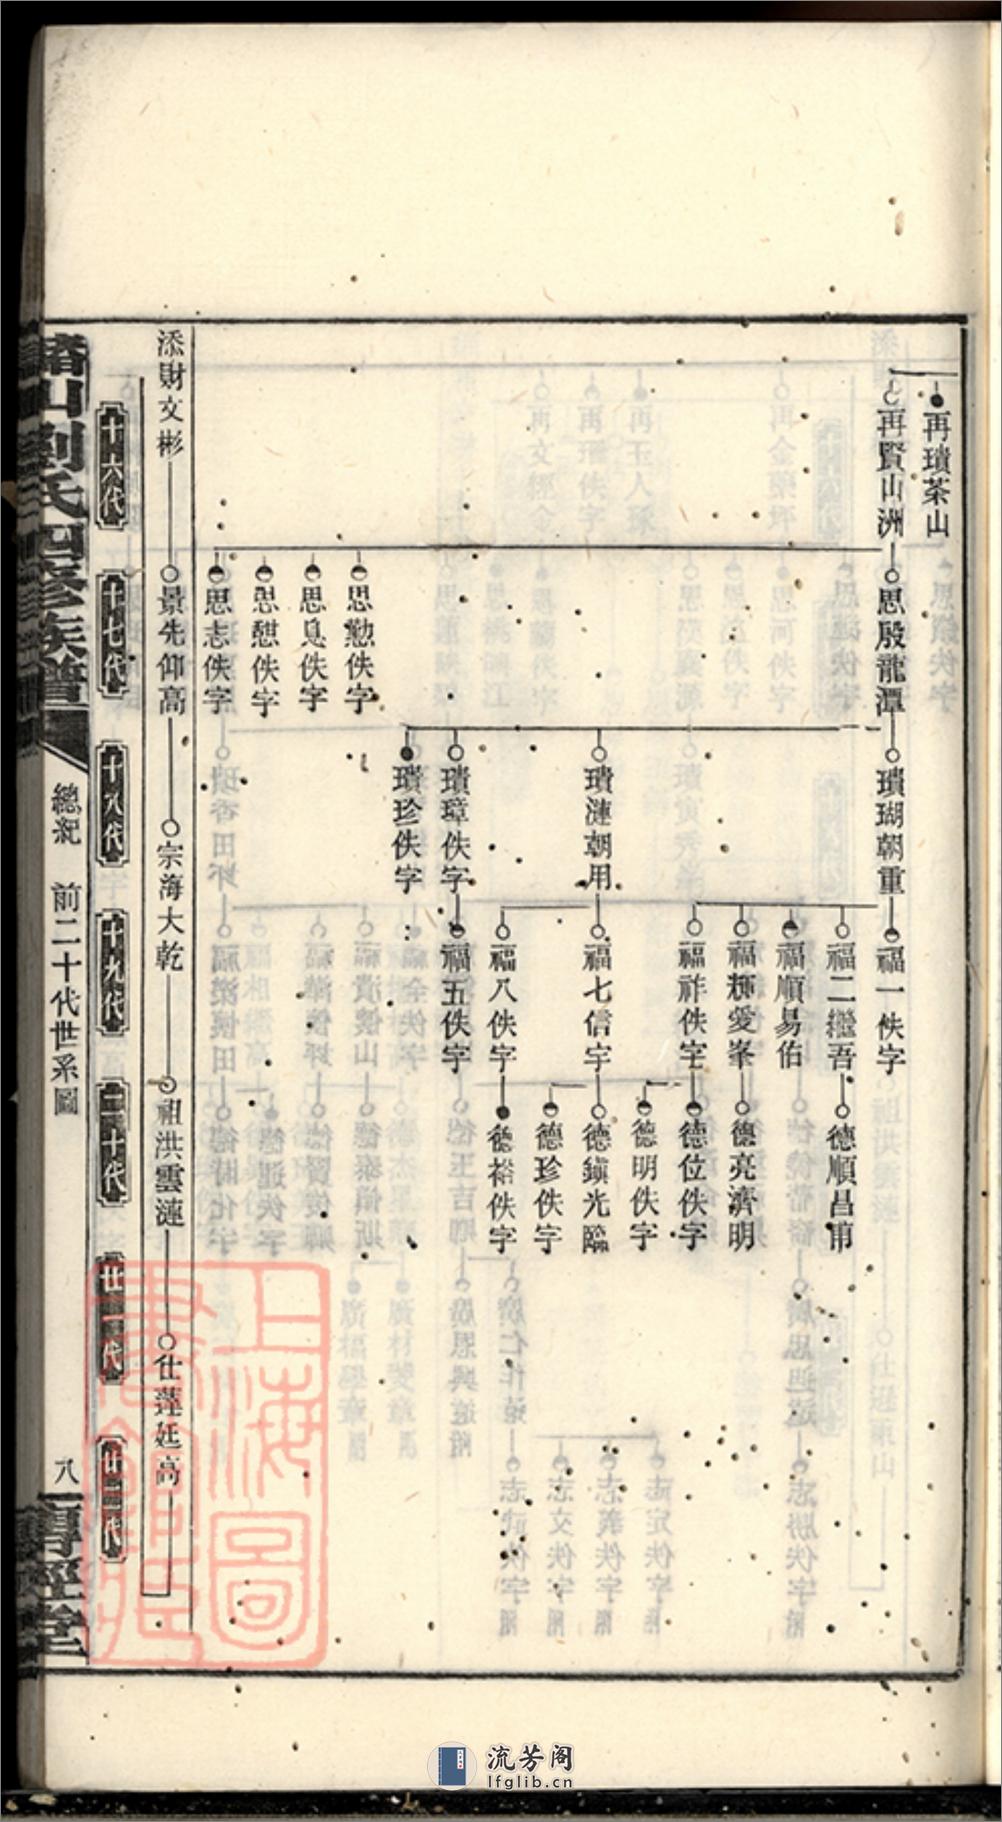 再璝茶山
再賢山洲
思殷龍潭
璝瑚朝重
福一佚字
福二繼吾
德順昌甫
福順易佑
福輝愛峯
德亮濟明
福祚佚字
德位佚字
德明佚字
璝漣朝用
福七信宇
德鎮光臨
德珍佚字
福八佚字
德裕佚字
璝璋佚字
福五佚字
璝珍佚字
思勳佚字
思佚字
思佚字
思志佚字
添財文彬
景先仰高
宗海大乾
祖洪雲漣
仕蓮廷高
十六代
十七代
十八代
十九代
二十代
廿一代
廿二代
諸山劉氏四修族譜
總紀 前二十代世系圖
八
傳經堂
上海圖書館藏
流芳阁
lfglib.cn